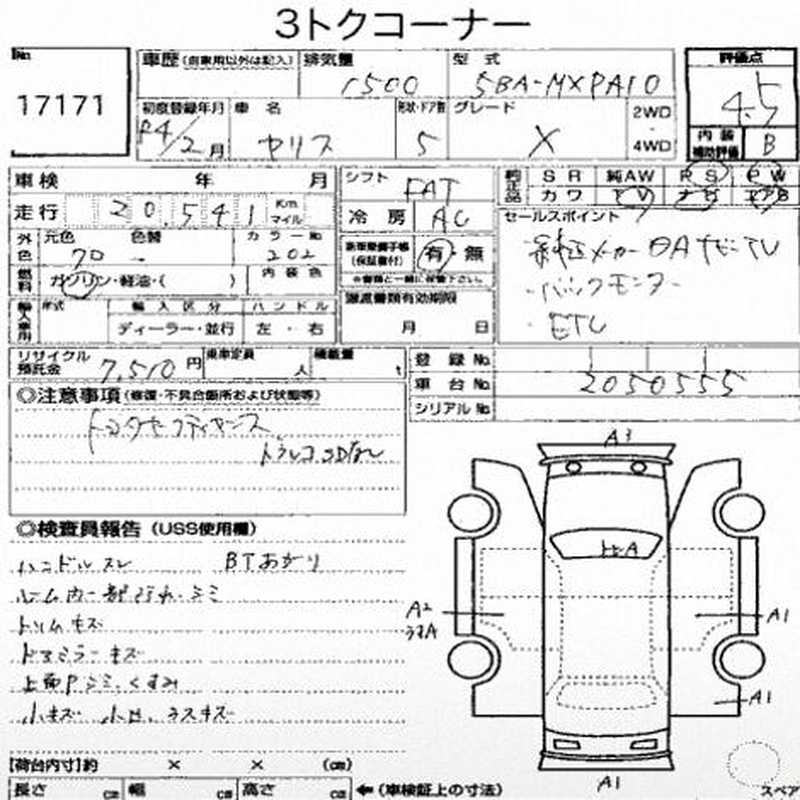 3トクコーナー
No.
17171
車歴 (自家用以外は記入)
排気量
1500
型 式
5BA-MXPA10
評価点
4.5
初度登録年月
R4/2月
車 名
ヤリス
形状・ドア数
5
グレード
X
2WD
4WD
内 装
補助評価
B
車 検 年 月
走 行 20,541 Km マイル
シフト
FAT
冷 房 AC
純正品
S R 純AW P S P W
カ ワ T V ナ ビ エアB
外色
元色 色替 カラーNo
70 - 202
燃料
ガソリン・軽油・( )
内 装 色
新車整備手帳
(保証書付)
有・無
※書類と一緒に保管下さい。
セールスポイント
・純正メーカーDAナビTV
・バックモニター
・ETC
輸入車用
年式 輸 入 区 分 ハ ン ド ル
ディーラー・並行 左 ・ 右
譲渡書類有効期限
月 日
リサイクル
預託金
7,510円
乗車定員 人
積載量 t
登 録 No.
車 台 No. 2050555
シリアル No.
◎注意事項 (修復・不具合箇所および状態等)
トヨタセーフティセンス
ドラレコSDなし
◎検査員報告 (USS使用欄)
ハンドルスレ BTあがり
ルーム内一部汚れ・シミ
トリムキズ
ドアミラーキズ
上面Pシミ、くすみ
小キズ
A3
A
A2
うすA
A1
A1
A1
【荷台内寸】約 × × (cm)
長さ cm 幅 cm 高さ cm ←(車検証上の寸法)
スペア